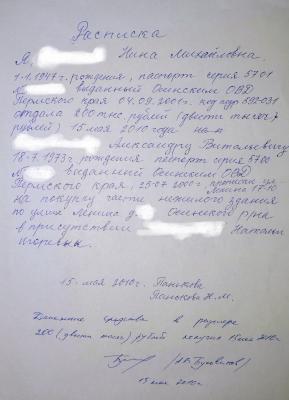 Расписка
Я, Нина Михайловна
1.1.1947г. рождения, паспорт серия 5701
N выданный Осинским ОВД
Пермского края 04.09.2001г. код подр 592-031
отдала 200 тыс. рублей (двести тысяч
рублей) 15 мая 2010 года
Александру Витальевичу
18.7.1973г. рождения паспорт серия 5700
N выданный Осинским ОВД
Пермского края, 25.07.2000г., прописан ул.
Ленина 17-10
на покупку части нежилого здания
по улице Ленина д. Осинского р/на
в присутствии Натальи
Игоревны.
15. мая 2010г. Панькова
Панькова Н.М.
Денежные средства в размере
200 (двести тысяч) рублей получил 15 мая 2010г.
15 мая 2010г.